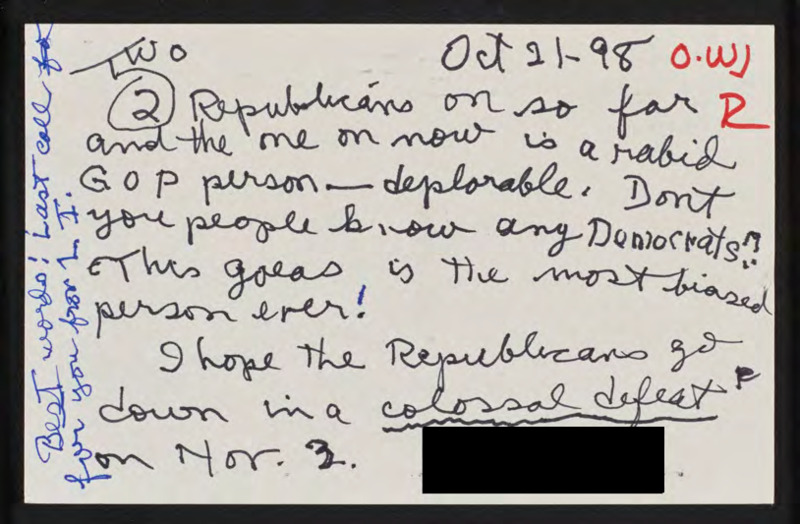 Two
Oct 21-98 O.W)
② Republicans on so far R
and the one on now is a rabid
G O P person — deplorable. Dont
you people know any Democrats??
This goeas is the most biased
person ever!
I hope the Republicans go
down in a colossal defeat
on Nov. 3.
Best words! Last call fo
for you from L. I.